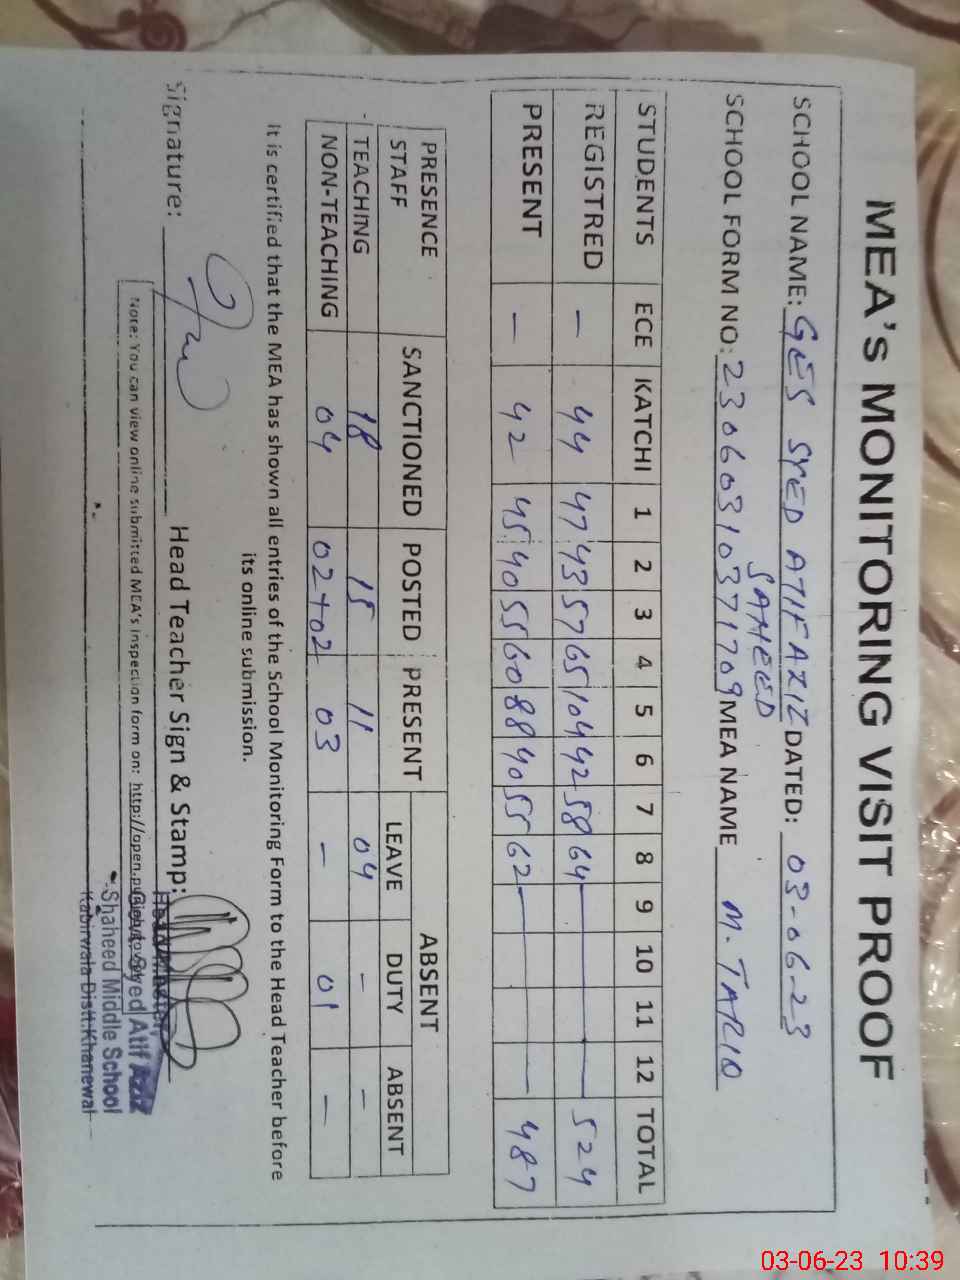 MEA's MONITORING VISIT PROOF
SCHOOL NAME: GES SYED ATIF AZIZ DATED: 03-06-23
SAHEED
SCHOOL FORM NO: 23060310371709 MEA NAME M. TARIQ
STUDENTS ECE KATCHI 1 2 3 4 5 6 7 8 9 10 11 12 TOTAL
REGISTRED — 44 47 43 57 65 104 42 58 64 — 524
PRESENT — 42 45 40 55 60 88 40 55 62 — 487
PRESENCE SANCTIONED POSTED PRESENT ABSENT
STAFF LEAVE DUTY ABSENT
TEACHING 18 15 11 04 - -
NON-TEACHING 04 02+02 03 - 01 -
It is certified that the MEA has shown all entries of the School Monitoring Form to the Head Teacher before
its online submission.
Signature: Head Teacher Sign & Stamp:
Note: You can view online submitted MEA's inspection form on: http://open.
Syed Atif Aziz
Shaheed Middle School
Kabirwala Distt.Khanewal
03-06-23 10:39